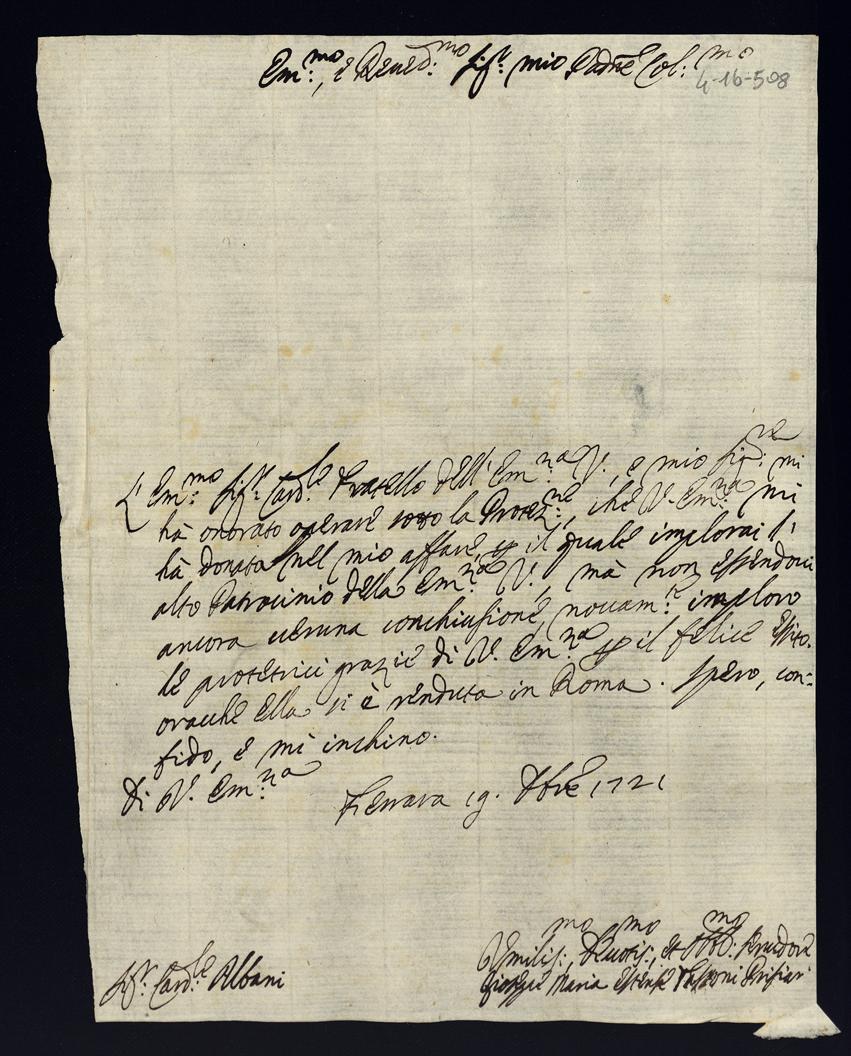 Em.mo, e Rever.mo Sig.r mio Padne Col:mo
4-16-508
L'Em:mo Sig.r Card.le Fratello dell'Em.nza V., e mio Sig:re mi
hà onorato operare sotto la Protez:ne, che V. Em:nza mi
hà donata nel mio affare, p il quale implorai l'
alto Patrocinio della Em.nza V., mà non essendoci
ancora veruna conchiusione, novam.te imploro
le protetrici grazie di V. Em.nza p il felice esito.
oracche Ella si è renduta in Roma. Spero, con:
fido, e mi inchino.
Di V. Em.nza
Ferrara 19. Xbre 1721
Sig.r Card.le Albani
Umilis:mo, Devotis:mo, et Obb:mo Servidore
Giorgio Maria Estense Tassoni